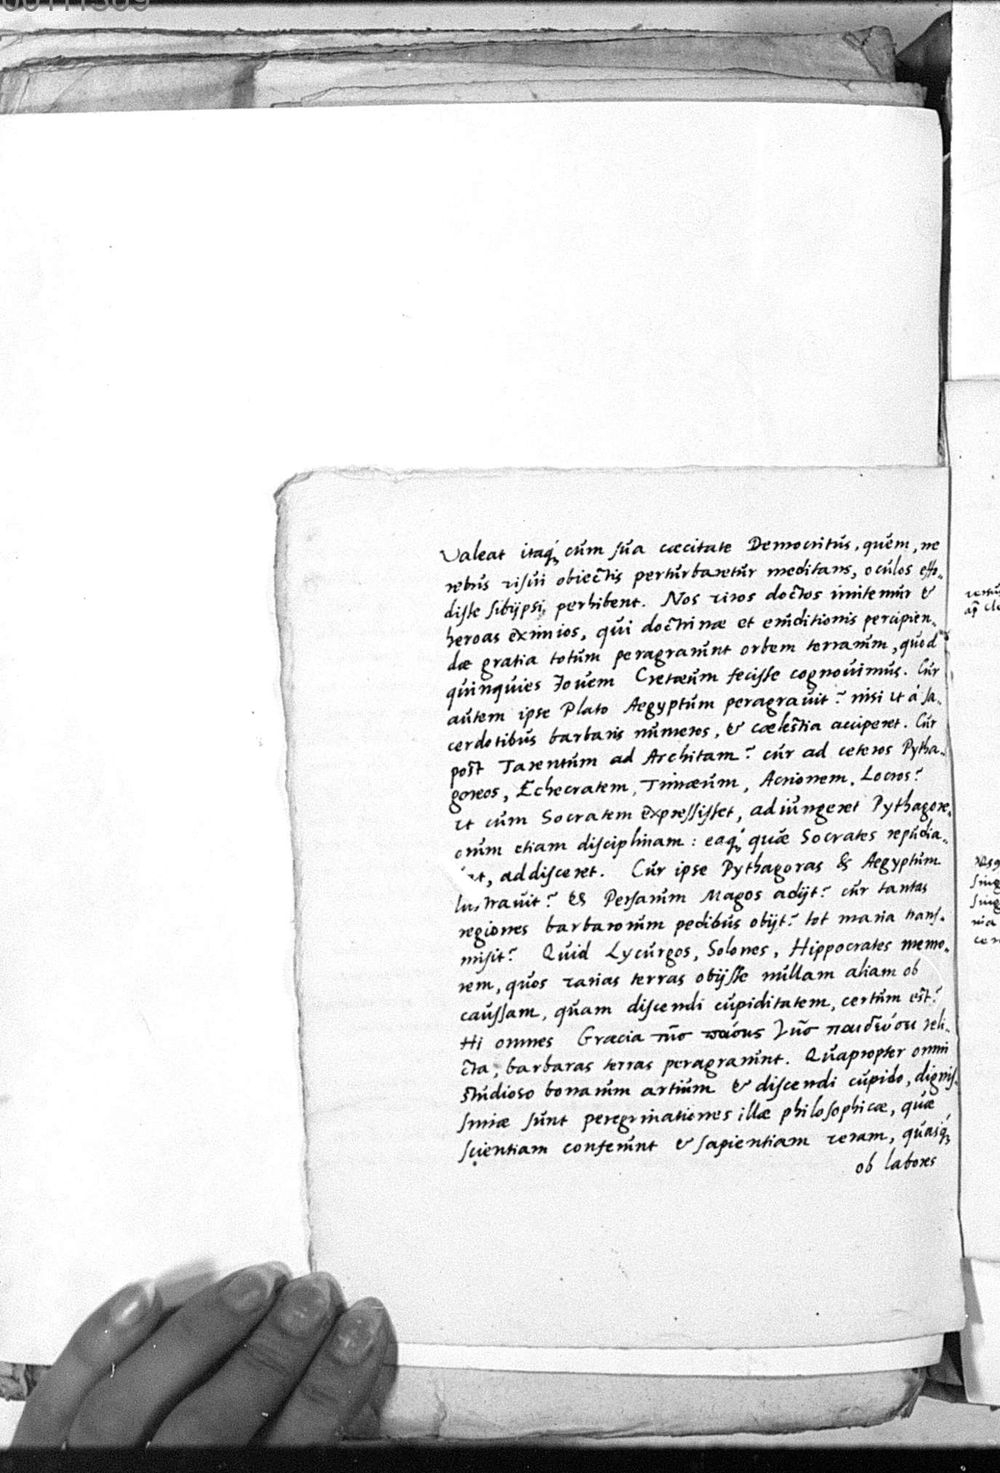 Valeat itaq; cùm sua cæcitate Democritus, quem, ne
rebus risui obiectis perturbaretur meditans, oculos effo-
disse sibijpsi, perhibent. Nos viros doctos imitemur &
heroas eximios, qui doctrinæ et eruditionis percipien-
dæ gratia totum peragrarunt orbem terrarum, quod
quinquies Jovem Cretæum fecisse cognovimus. Cur
autem ipse Plato Aegyptum peragravit? nisi ut à sa-
cerdotibus barbaris numeros, & cælestia acciperet. Cur
post Tarentum ad Architam? cur ad ceteros Pytha-
goreos, Echecratem, Timæum, Acrionem, Locros?
ut cum Socratem expressisset, adiungeret Pythagore-
orum etiam disciplinam: eaq; quæ Socrates repudia-
, addisceret. Cur ipse Pythagoras & Aegyptum
lustravit? & Persarum Magos adijt? cur tantas
regiones barbarorum pedibus obijt? tot maria trans-
misit? Quid Lycurgos, Solones, Hippocrates memo-
rem, quos varias terras obijsse nullam aliam ob
caussam, quam discendi cupiditatem, certum est?
Hi omnes Græcia reli-
cta, barbaras terras peragrarunt. Quapropter omni
studioso bonarum artium & discendi cupido, dignis-
simæ sunt peregrinationes illæ philosophicæ, quæ
scientiam conferunt & sapientiam veram, quasq;
ob labores